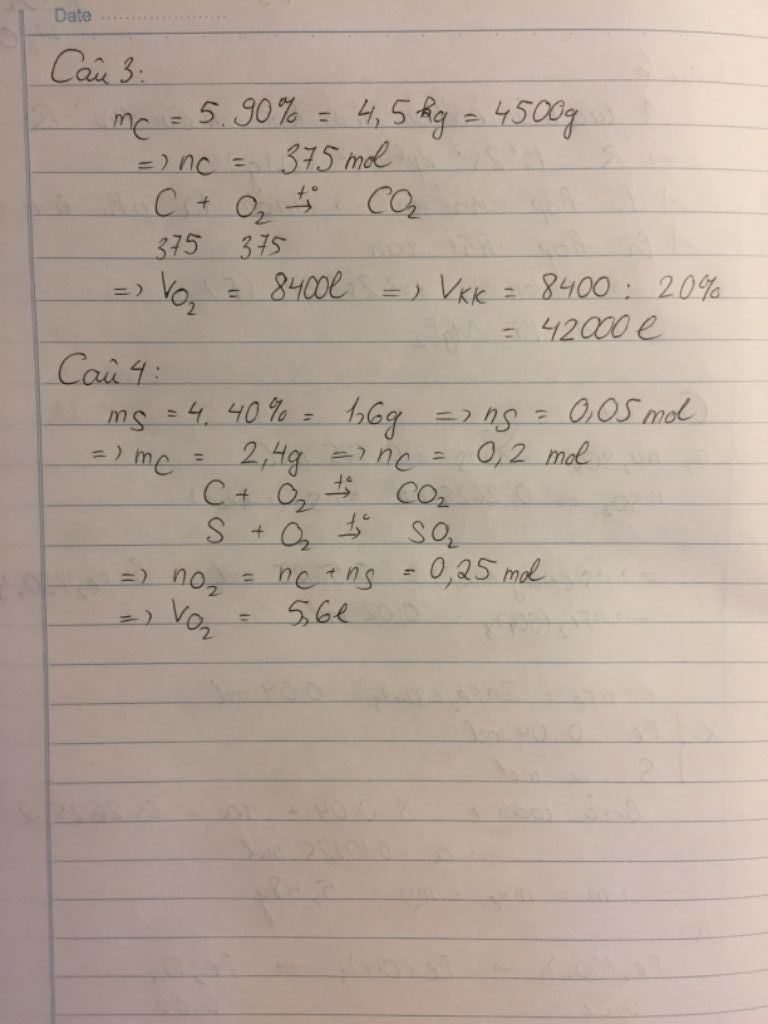 Date
Câu 3:
mC = 5.90% = 4,5 kg = 4500g
=> nC = 375 mol
C + O2 t°→ CO2
375 375
=> VO2 = 8400l => VKK = 8400 : 20%
= 42000 l
Câu 4:
mS = 4. 40% = 1,6g => nS = 0,05 mol
=> mC = 2,4g => nC = 0,2 mol
C + O2 t°→ CO2
S + O2 t°→ SO2
=> nO2 = nC + nS = 0,25 mol
=> VO2 = 5,6l